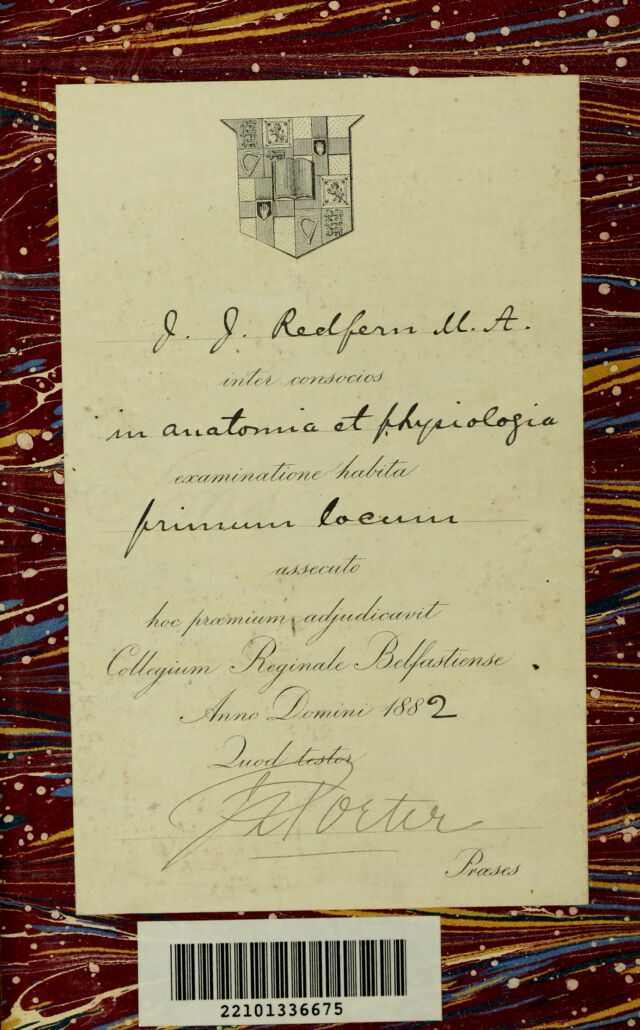 J. J. Redfern M. A.
inter consocios
in anatomia et physiologia
examinatione habita
primum locum
assecuto
hoc præmium adjudicavit
Collegium Reginale Belfastiense
Anno Domini 1882
Quod testor
Porter
Præses
22101336675